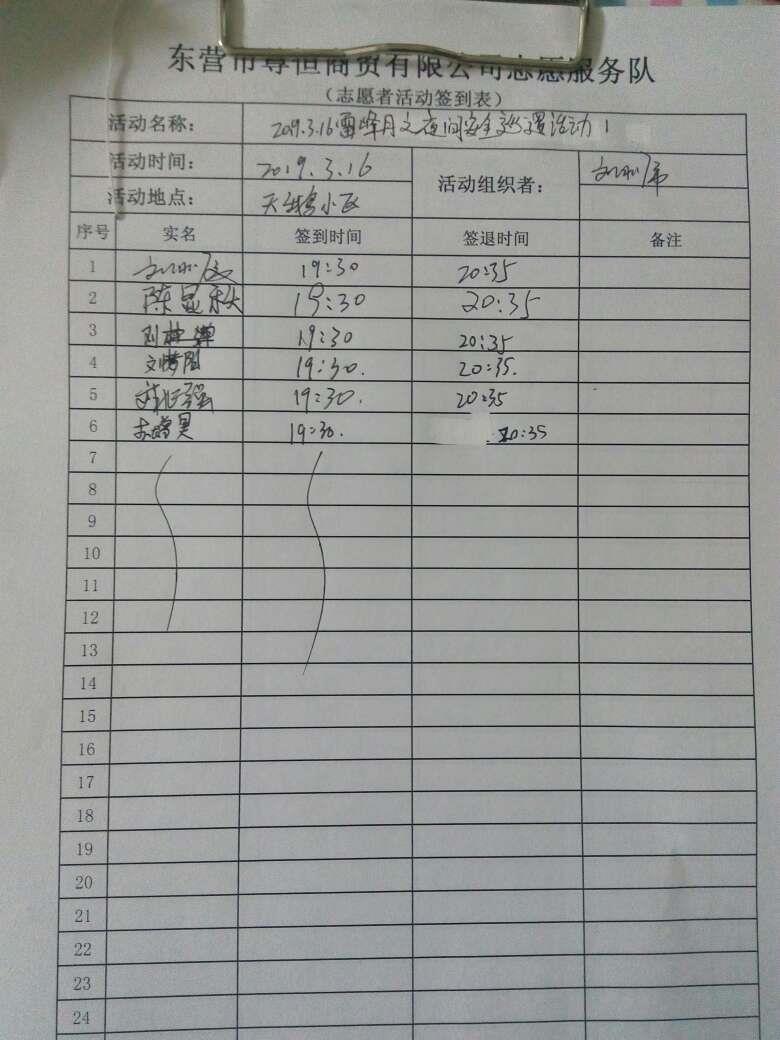 东营市尊恒商贸有限公司志愿服务队
(志愿者活动签到表)
活动名称: 2019.3.16雷峰月之夜间安全巡逻活动1
活动时间: 2019.3.16 活动组织者:
活动地点: 天鹅小区
序号 实名 签到时间 签退时间 备注
1 19:30 20:35
2 陈显秋 19:30 20:35
3 19:30 20:35
4 19:30. 20:35.
5 19:30. 20:35
6 19:30. 20:35
7
8
9
10
11
12
13
14
15
16
17
18
19
20
21
22
23
24